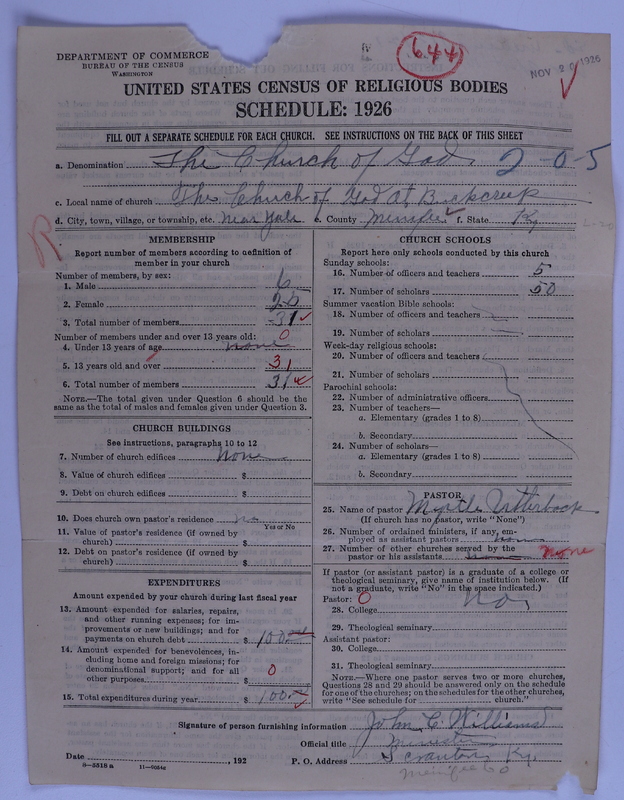 DEPARTMENT OF COMMERCE
BUREAU OF THE CENSUS
WASHINGTON
644
NOV 20 1926
UNITED STATES CENSUS OF RELIGIOUS BODIES
SCHEDULE: 1926
FILL OUT A SEPARATE SCHEDULE FOR EACH CHURCH. SEE INSTRUCTIONS ON THE BACK OF THIS SHEET
a. Denomination The Church of God 2-0-5
c. Local name of church The Church of God at Buckcreek
d. City, town, village, or township, etc. Near Yale e. County Menifee f. State Ky.
L-20
R
MEMBERSHIP
Report number of members according to definition of
member in your church
Number of members, by sex:
1. Male 6
2. Female
3. Total number of members 31
Number of members under and over 13 years old:
4. Under 13 years of age none 0
5. 13 years old and over 31
6. Total number of members 31
NOTE.—The total given under Question 6 should be the
same as the total of males and females given under Question 3.
CHURCH BUILDINGS
See instructions, paragraphs 10 to 12
7. Number of church edifices None
8. Value of church edifices $
9. Debt on church edifices $
10. Does church own pastor's residence no
Yes or No
11. Value of pastor's residence (if owned by
church) $
12. Debt on pastor's residence (if owned by
church) $
EXPENDITURES
Amount expended by your church during last fiscal year
13. Amount expended for salaries, repairs,
and other running expenses; for im-
provements or new buildings; and for
payments on church debt $ 100
14. Amount expended for benevolences, in-
cluding home and foreign missions; for
denominational support; and for all
other purposes $ 0
15. Total expenditures during year $ 100
CHURCH SCHOOLS
Report here only schools conducted by this church
Sunday schools:
16. Number of officers and teachers 5
17. Number of scholars 50
Summer vacation Bible schools:
18. Number of officers and teachers
19. Number of scholars
Week-day religious schools:
20. Number of officers and teachers
21. Number of scholars
Parochial schools:
22. Number of administrative officers
23. Number of teachers—
a. Elementary (grades 1 to 8)
b. Secondary
24. Number of scholars—
a. Elementary (grades 1 to 8)
b. Secondary
PASTOR
25. Name of pastor Myrtle Utterback
(If church has no pastor, write "None")
26. Number of ordained ministers, if any, em-
ployed as assistant pastors
27. Number of other churches served by the
pastor or his assistants none
If pastor (or assistant pastor) is a graduate of a college or
theological seminary, give name of institution below. (If
not a graduate, write "No" in the space indicated.)
Pastor: 0 No
28. College
29. Theological seminary
Assistant pastor:
30. College
31. Theological seminary
NOTE.—Where one pastor serves two or more churches,
Questions 28 and 29 should be answered only on the schedule
for one of the churches; on the schedules for the other churches,
write "See schedule for church."
Signature of person furnishing information John C. Williams
Official title Minister
Date , 192 P. O. Address Scranton Ky.
Menifee Co
8-5518 a 11-9084